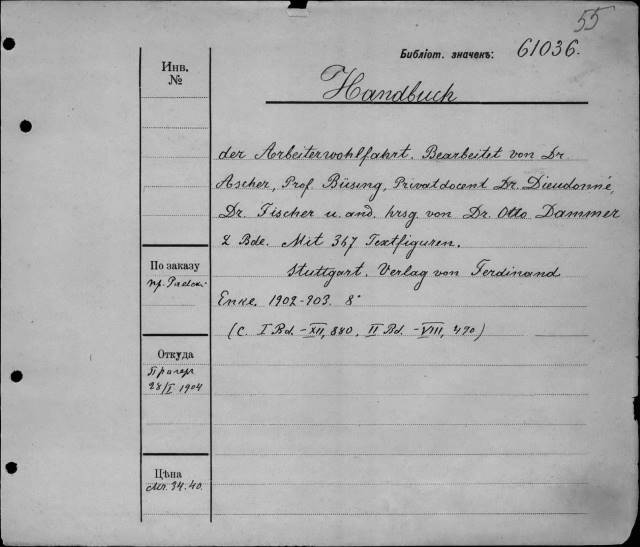 55
Библіот. значекъ: 61036.
Инв.
№
Handbuch
der Arbeiterwohlfahrt. Bearbeitet von Dr
Ascher, Prof Büsing, Privatdocent Dr. Dieudonné,
Dr. Fischer u. and. hrsg. von Dr. Otto Dammer
2 Bde. Mit 367 Textfiguren.
Stuttgart. Verlag von Ferdinand
Enke. 1902-903. 8°
(C. I Bd. – XII, 880. II Bd. – VIII, 490)
По заказу
пр.
Откуда
Прагер
28/I 1904
Цѣна
Mr. 34.40.